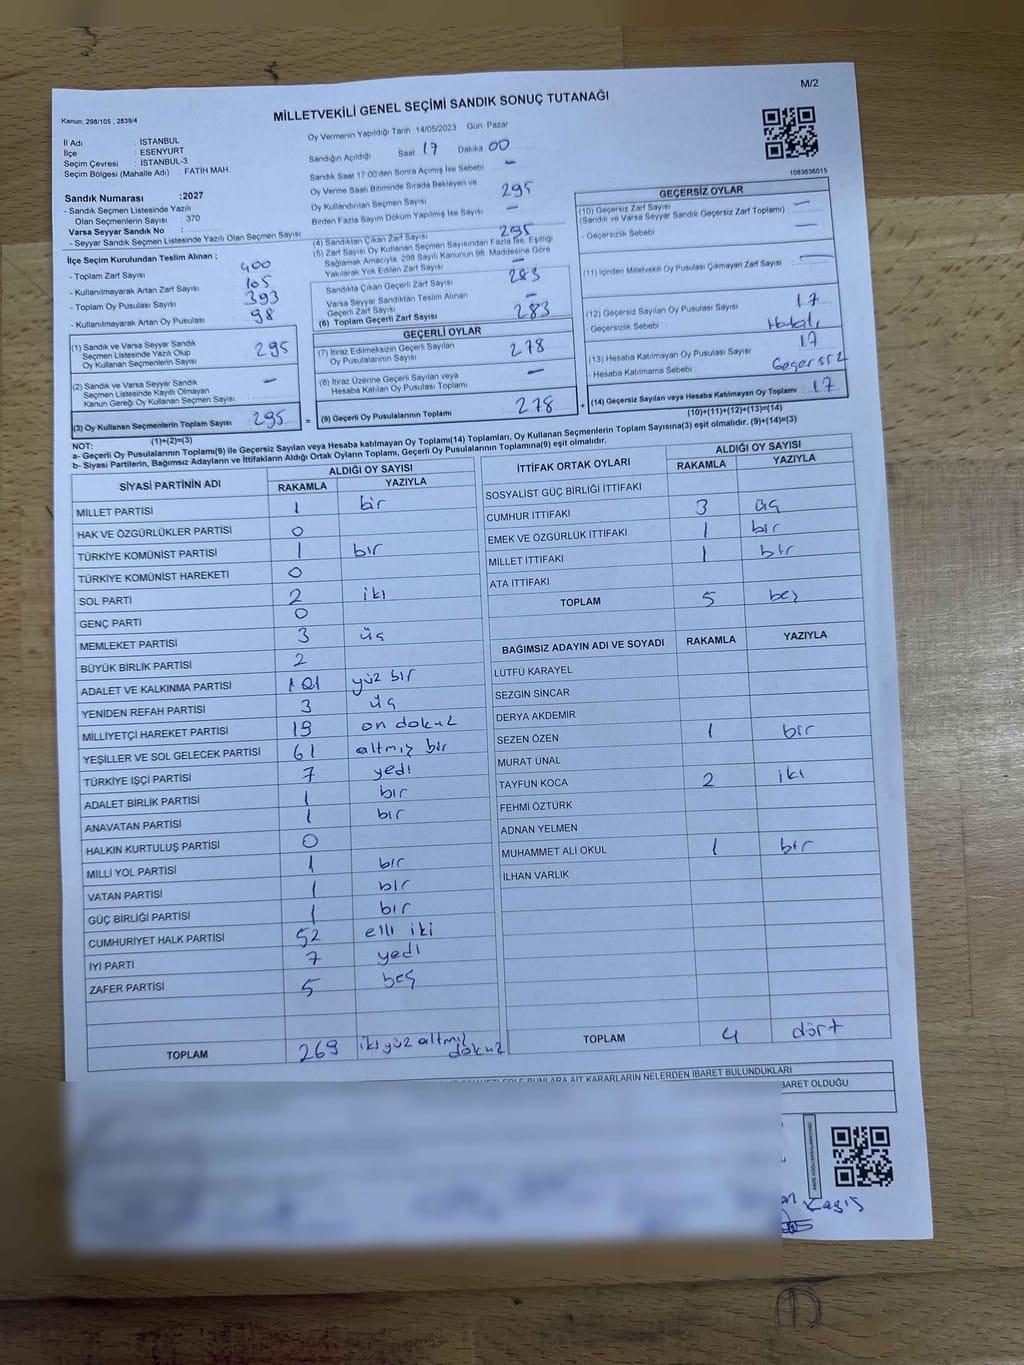 M/2
MİLLETVEKİLİ GENEL SEÇİMİ SANDIK SONUÇ TUTANAĞI
Kanun: 298/105 , 2839/4
İl Adı : İSTANBUL
İlçe : ESENYURT
Seçim Çevresi : İSTANBUL-3
Seçim Bölgesi (Mahalle Adı) : FATİH MAH
Sandık Numarası :2027
- Sandık Seçmen Listesinde Yazılı
Olan Seçmenlerin Sayısı : 370
Varsa Seyyar Sandık No :
- Seyyar Sandık Seçmen Listesinde Yazılı Olan Seçmen Sayısı
İlçe Seçim Kurulundan Teslim Alınan ;
- Toplam Zarf Sayısı 400
- Kullanılmayarak Artan Zarf Sayısı 105
- Toplam Oy Pusulası Sayısı 393
- Kullanılmayarak Artan Oy Pusulası 98
(1) Sandık ve Varsa Seyyar Sandık
Seçmen Listesinde Yazılı Olup
Oy Kullanan Seçmenlerin Sayısı 295
(2) Sandık ve Varsa Seyyar Sandık
Seçmen Listesinde Kayıtlı Olmayan
Kanun Gereği Oy Kullanan Seçmen Sayısı -
(3) Oy Kullanan Seçmenlerin Toplam Sayısı 295
(1)+(2)=(3)
Oy Vermenin Yapıldığı Tarih :14/05/2023 Gün: Pazar
Sandığın Açıldığı Saat 17 Dakika 00
Sandık Saat 17:00'den Sonra Açılmış İse Sebebi -
Oy Verme Saati Bitiminde Sırada Bekleyen ve
Oy Kullandırılan Seçmen Sayısı 295
Birden Fazla Sayım Döküm Yapılmış İse Sayısı -
(4) Sandıktan Çıkan Zarf Sayısı 295
(5) Zarf Sayısı Oy Kullanan Seçmen Sayısından Fazla ise, Eşitliği
Sağlamak Amacıyla, 298 Sayılı Kanunun 98. Maddesine Göre
Yakılarak Yok Edilen Zarf Sayısı -
Sandıkta Çıkan Geçerli Zarf Sayısı 283
Varsa Seyyar Sandıktan Teslim Alınan
Geçerli Zarf Sayısı
(6) Toplam Geçerli Zarf Sayısı 283
GEÇERLİ OYLAR
(7) İtiraz Edilmeksizin Geçerli Sayılan
Oy Pusulalarının Sayısı 278
(8) İtiraz Üzerine Geçerli Sayılan veya
Hesaba Katılan Oy Pusulası Toplamı -
= (9) Geçerli Oy Pusulalarının Toplamı 278
1083636015
GEÇERSİZ OYLAR
(10) Geçersiz Zarf Sayısı -
(Sandık ve Varsa Seyyar Sandık Geçersiz Zarf Toplamı)
- Geçersizlik Sebebi -
(11) İçinden Milletvekili Oy Pusulası Çıkmayan Zarf Sayısı -
(12) Geçersiz Sayılan Oy Pusulası Sayısı 17
- Geçersizlik Sebebi :
(13) Hesaba Katılmayan Oy Pusulası Sayısı 17
- Hesaba Katılmama Sebebi : Geçersiz
+ (14) Geçersiz Sayılan veya Hesaba Katılmayan Oy Toplamı 17
(10)+(11)+(12)+(13)=(14)
NOT:
a- Geçerli Oy Pusulalarının Toplamı(9) ile Geçersiz Sayılan veya Hesaba katılmayan Oy Toplamı(14) Toplamları, Oy Kullanan Seçmenlerin Toplam Sayısına(3) eşit olmalıdır. (9)+(14)=(3)
b- Siyasi Partilerin, Bağımsız Adayların ve İttifakların Aldığı Ortak Oyların Toplamı, Geçerli Oy Pusulalarının Toplamına(9) eşit olmalıdır.
SİYASİ PARTİNİN ADI ALDIĞI OY SAYISI
RAKAMLA YAZIYLA
MİLLET PARTİSİ 1 bir
HAK VE ÖZGÜRLÜKLER PARTİSİ 0
TÜRKİYE KOMÜNİST PARTİSİ 1 bir
TÜRKİYE KOMÜNİST HAREKETİ 0
SOL PARTİ 2 iki
GENÇ PARTİ 0
MEMLEKET PARTİSİ 3 üç
BÜYÜK BİRLİK PARTİSİ 2
ADALET VE KALKINMA PARTİSİ 101 yüz bir
YENİDEN REFAH PARTİSİ 3 üç
MİLLİYETÇİ HAREKET PARTİSİ 19 on dokuz
YEŞİLLER VE SOL GELECEK PARTİSİ 61 altmış bir
TÜRKİYE İŞÇİ PARTİSİ 7 yedi
ADALET BİRLİK PARTİSİ 1 bir
ANAVATAN PARTİSİ 1 bir
HALKIN KURTULUŞ PARTİSİ 0
MİLLİ YOL PARTİSİ 1 bir
VATAN PARTİSİ 1 bir
GÜÇ BİRLİĞİ PARTİSİ 1 bir
CUMHURİYET HALK PARTİSİ 52 elli iki
İYİ PARTİ 7 yedi
ZAFER PARTİSİ 5 beş
TOPLAM 269 iki yüz altmış dokuz
İTTİFAK ORTAK OYLARI ALDIĞI OY SAYISI
RAKAMLA YAZIYLA
SOSYALİST GÜÇ BİRLİĞİ İTTİFAKI
CUMHUR İTTİFAKI 3 üç
EMEK VE ÖZGÜRLÜK İTTİFAKI 1 bir
MİLLET İTTİFAKI 1 bir
ATA İTTİFAKI
TOPLAM 5 beş
BAĞIMSIZ ADAYIN ADI VE SOYADI RAKAMLA YAZIYLA
LÜTFÜ KARAYEL
SEZGİN SİNCAR
DERYA AKDEMİR
SEZEN ÖZEN 1 bir
MURAT ÜNAL
TAYFUN KOCA 2 iki
FEHMİ ÖZTÜRK
ADNAN YELMEN
MUHAMMET ALİ OKUL 1 bir
İLHAN VARLIK
TOPLAM 4 dört
BUNLARA AİT KARARLARIN NELERDEN İBARET BULUNDUKLARI
İBARET OLDUĞU